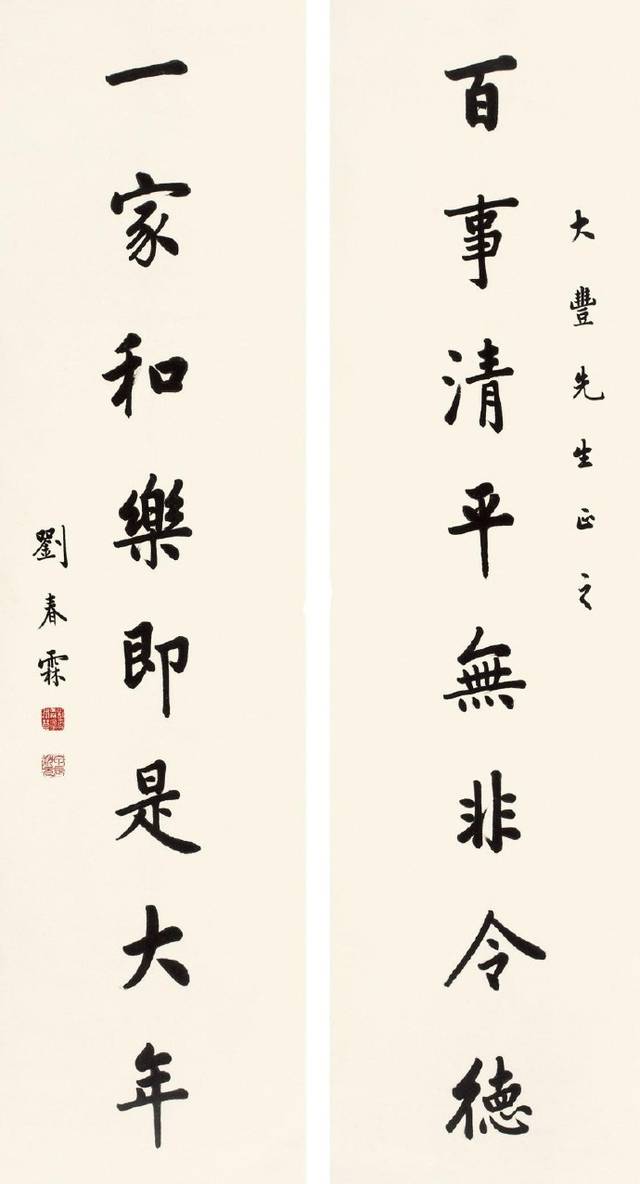 大豐先生正之
百事清平無非令德
一家和樂即是大年
劉春霖